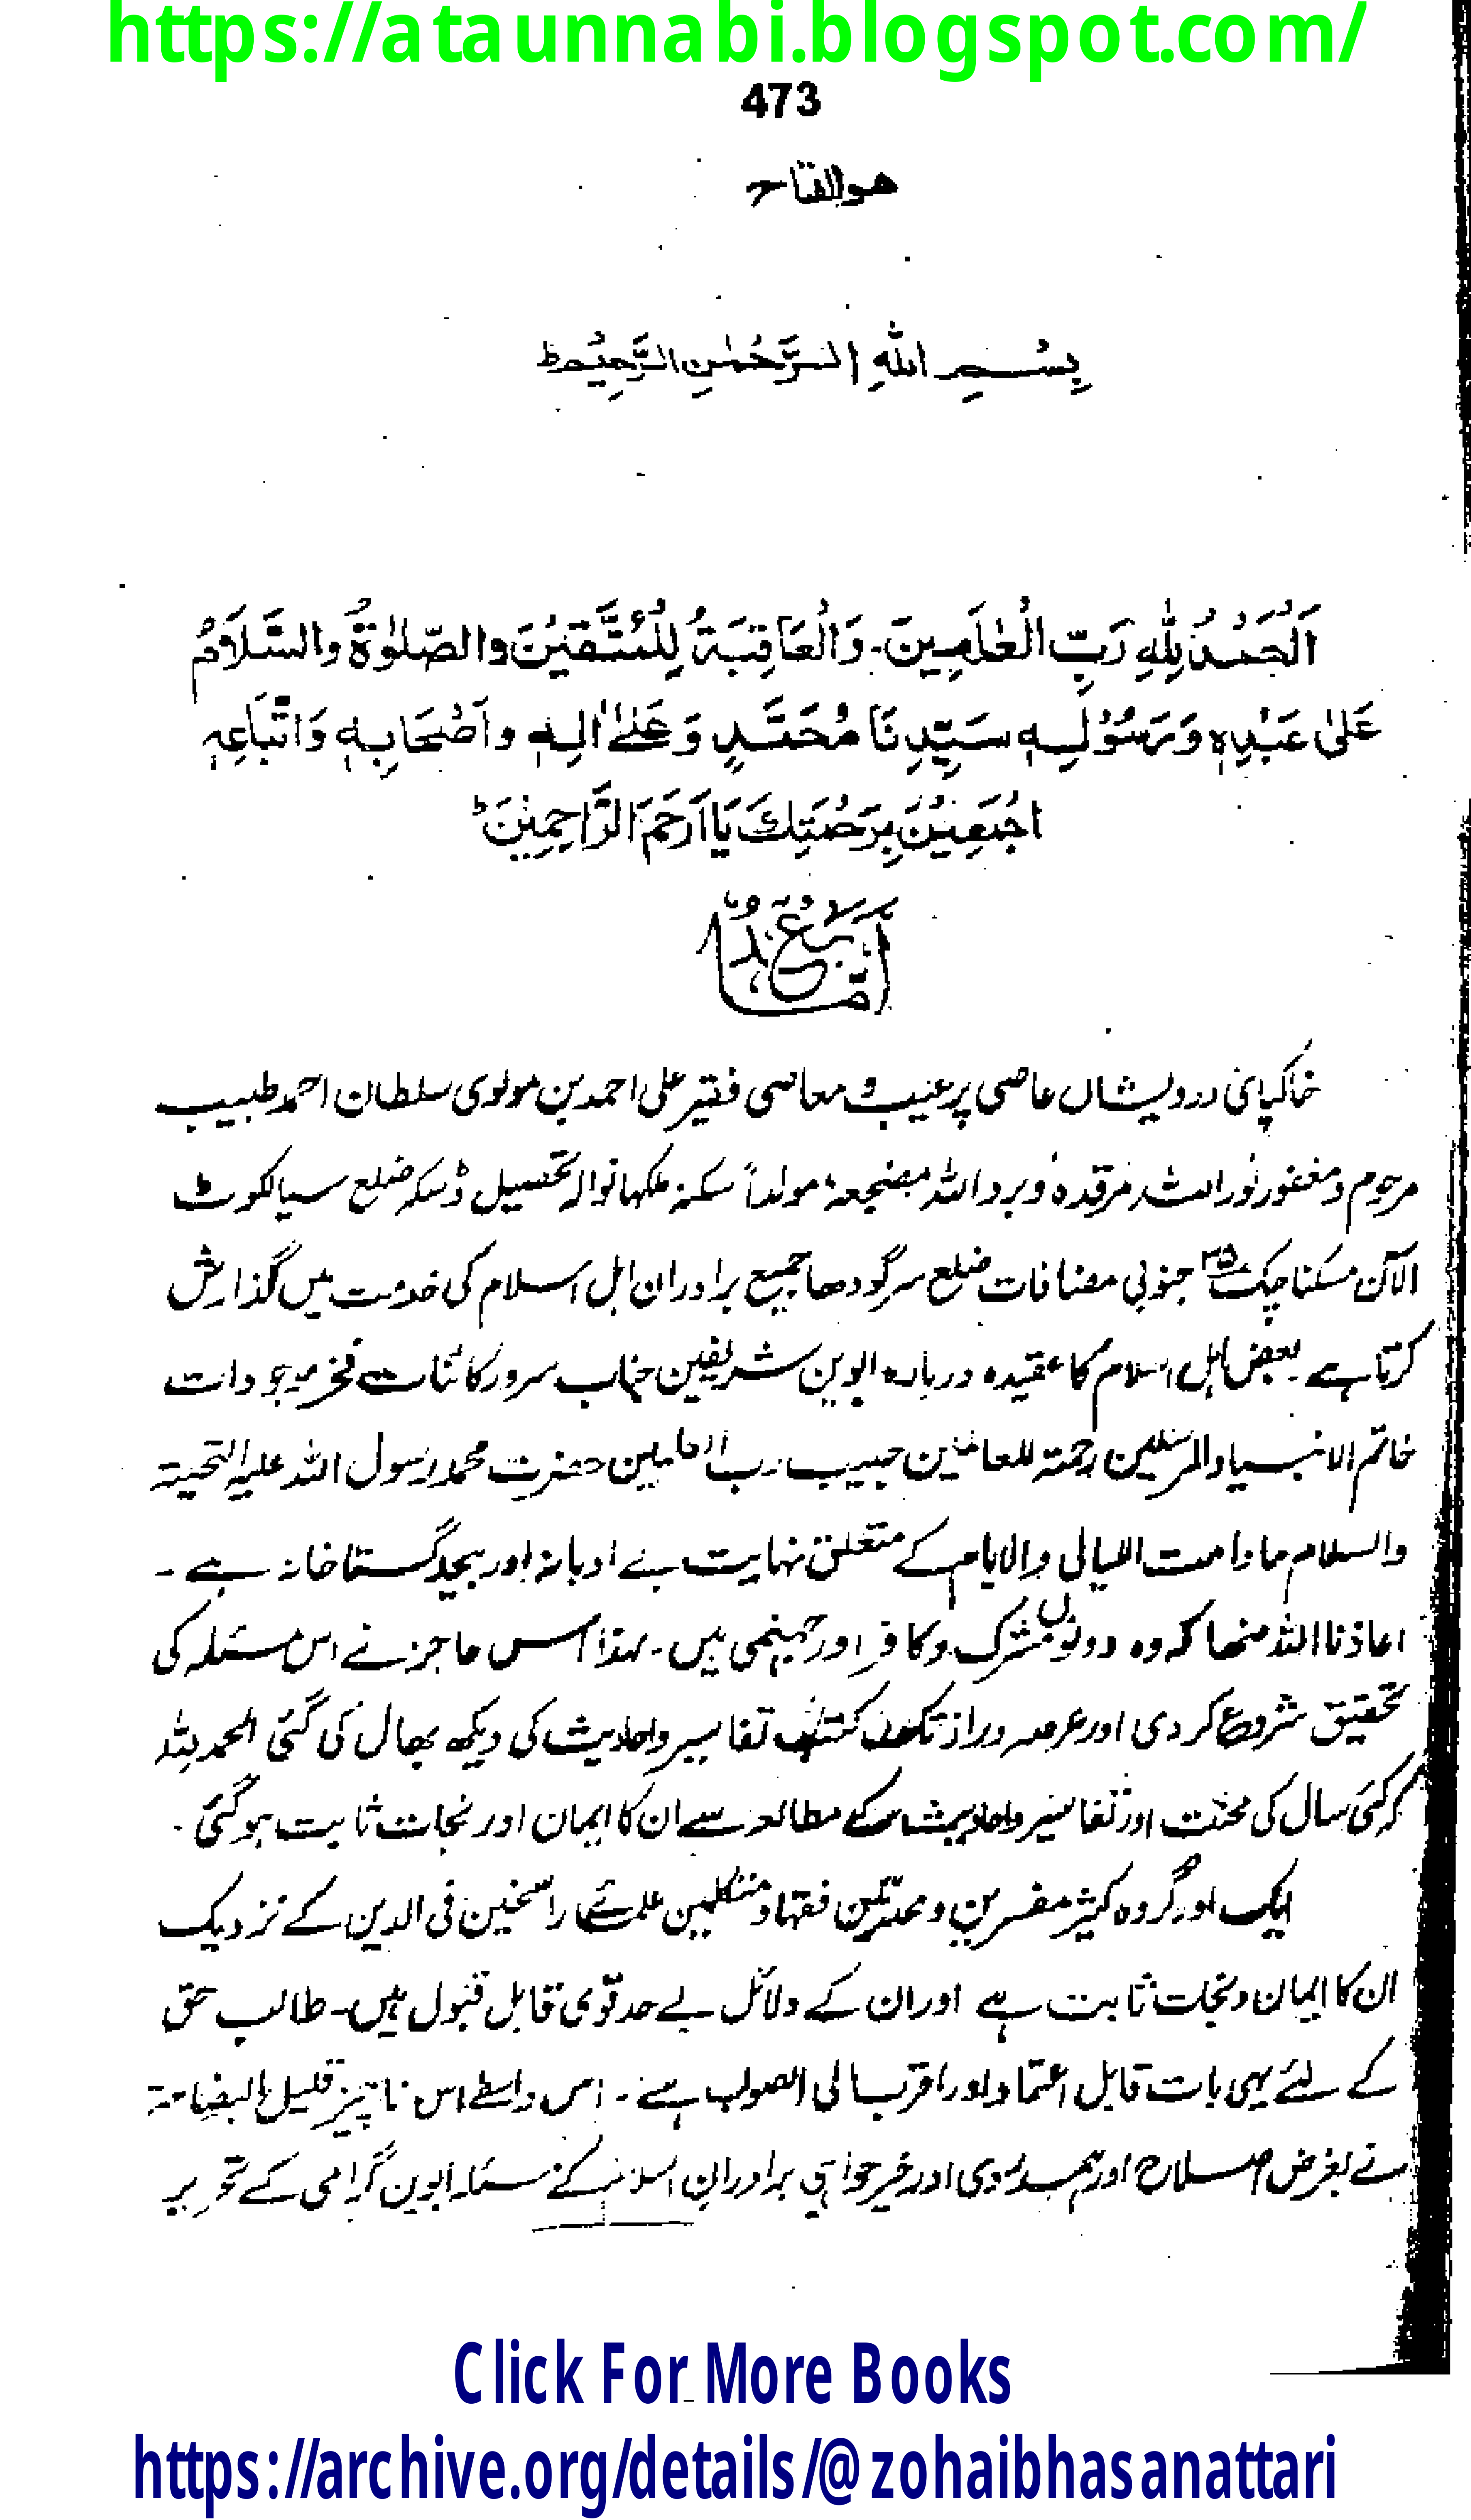 https://ataunnabi.blogspot.com/
473
هو الفتاح
بِسْمِ اللهِ الرَّحْمٰنِ الرَّحِيْمِ ط
اَلْحَمْدُ لِلّٰهِ رَبِّ الْعٰلَمِيْنَ۔ وَالْعَاقِبَةُ لِلْمُتَّقِيْنَ والصَّلٰوةُ والسَّلَامُ
عَلٰى عَبْدِهٖ وَرَسُوْلِهٖ سَيِّدِنَا مُحَمَّدٍ وَعَلٰى اٰلِهٖ واَصْحَابِهٖ وَاَتْبَاعِهٖ
اَجْمَعِيْنَ بِرَحْمَتِكَ يَا اَرْحَمَ الرَّاحِمِيْنَ ط
اَمَّا بَعْدُ
خاکپائی درویشاں عاصی پرعیب و معاصی فقیر علی احمد بن مولوی سلطان احمد طبیب
مرحوم و مغفور نور اللہ مرقدہٗ و برد اللہ مضجعہٗ مولداً سکنہ ملکھانوالہ تحصیل ڈسکہ ضلع سیالکوٹ
الآن مسکنا چک ۳۵ جنوبی مضافات ضلع سرگودھا جمیع برادران اہل اسلام کی خدمت میں گذارش
کرتا ہے۔ بعض اہل اسلام کا عقیدہ دربارہ ابوین شریفین جناب سرور کائنات فخر موجودات
خاتم الانبیاء والمرسلین رحمۃ للعالمین حبیب رب العالمین حضرت محمد رسول اللہ علیہ التحیۃ
والسلام مادامت اللیالی والایام کے متعلق نہایت بے ادبانہ اور بیحد گستاخانہ ہے۔
اعاذنا اللہ منھا کہ وہ دونوں مشرک و کافر اور جہنمی ہیں۔ لہذا اس عاجز نے اس مسئلہ کی
تحقیق شروع کردی اور عرصہ دراز تک کتب تفاسیر واحادیث کی دیکھ بھال کی گئی الحمد للہ
کہ کئی سال کی محنت اور تفاسیر واحادیث کے مطالعہ سے ان کا ایمان اور نجات ثابت ہوگئی۔
ایک اور گروہ کثیر مفسرین و محدثین فقہاء و متکلمین علمائے راسخین فی الدین کے نزدیک
ان کا ایمان و نجات ثابت ہے اور ان کے دلائل بے حد قوی قابل قبول ہیں۔ طالب حق
کے لئے یہی بات قابل اعتماد اور اقرب الی الصواب ہے۔ اس واسطے اس ناچیز قلیل البضاعۃ
نے بغرض اصلاح اور ہمدردی اور خیرخواہی برادران اسلام کے مسئلہ ابوین گرامی کے تحریر
Click For More Books
https://archive.org/details/@zohaibhasanattari